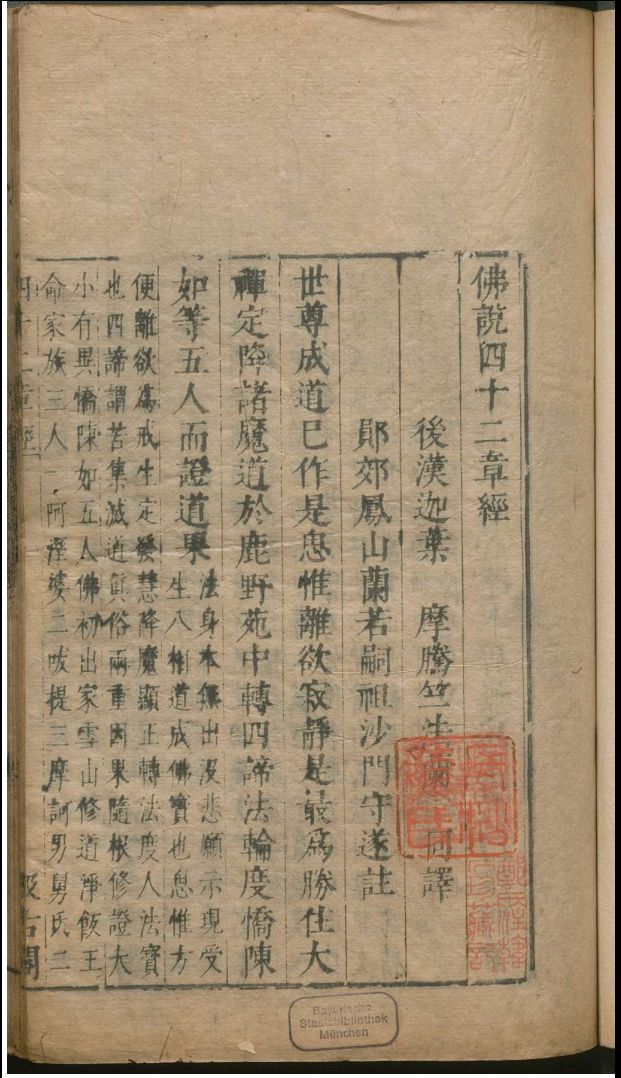 佛說四十二章經
後漢迦葉　摩騰竺法蘭　同譯
郧郊鳳山蘭若嗣祖沙門守遂註
世尊成道已作是思惟離欲寂靜是最爲勝住大
禪定降諸魔道於鹿野苑中轉四諦法輪度憍陳
如等五人而證道果
法身本無出沒悲願示現受
生八相道成佛寶也思惟方
便離欲爲戒生定發慧降魔顯正轉法度人法寶
也四諦謂苦集滅道眞俗兩重因果隨根修證大
小有異憍陳如五人佛初出家雪山修道淨飯王
命家族三人一阿溼婆二䟦提三摩訶男舅氏二
四十二章經
汲古閣
Bayerische
Staatsbibliothek
München